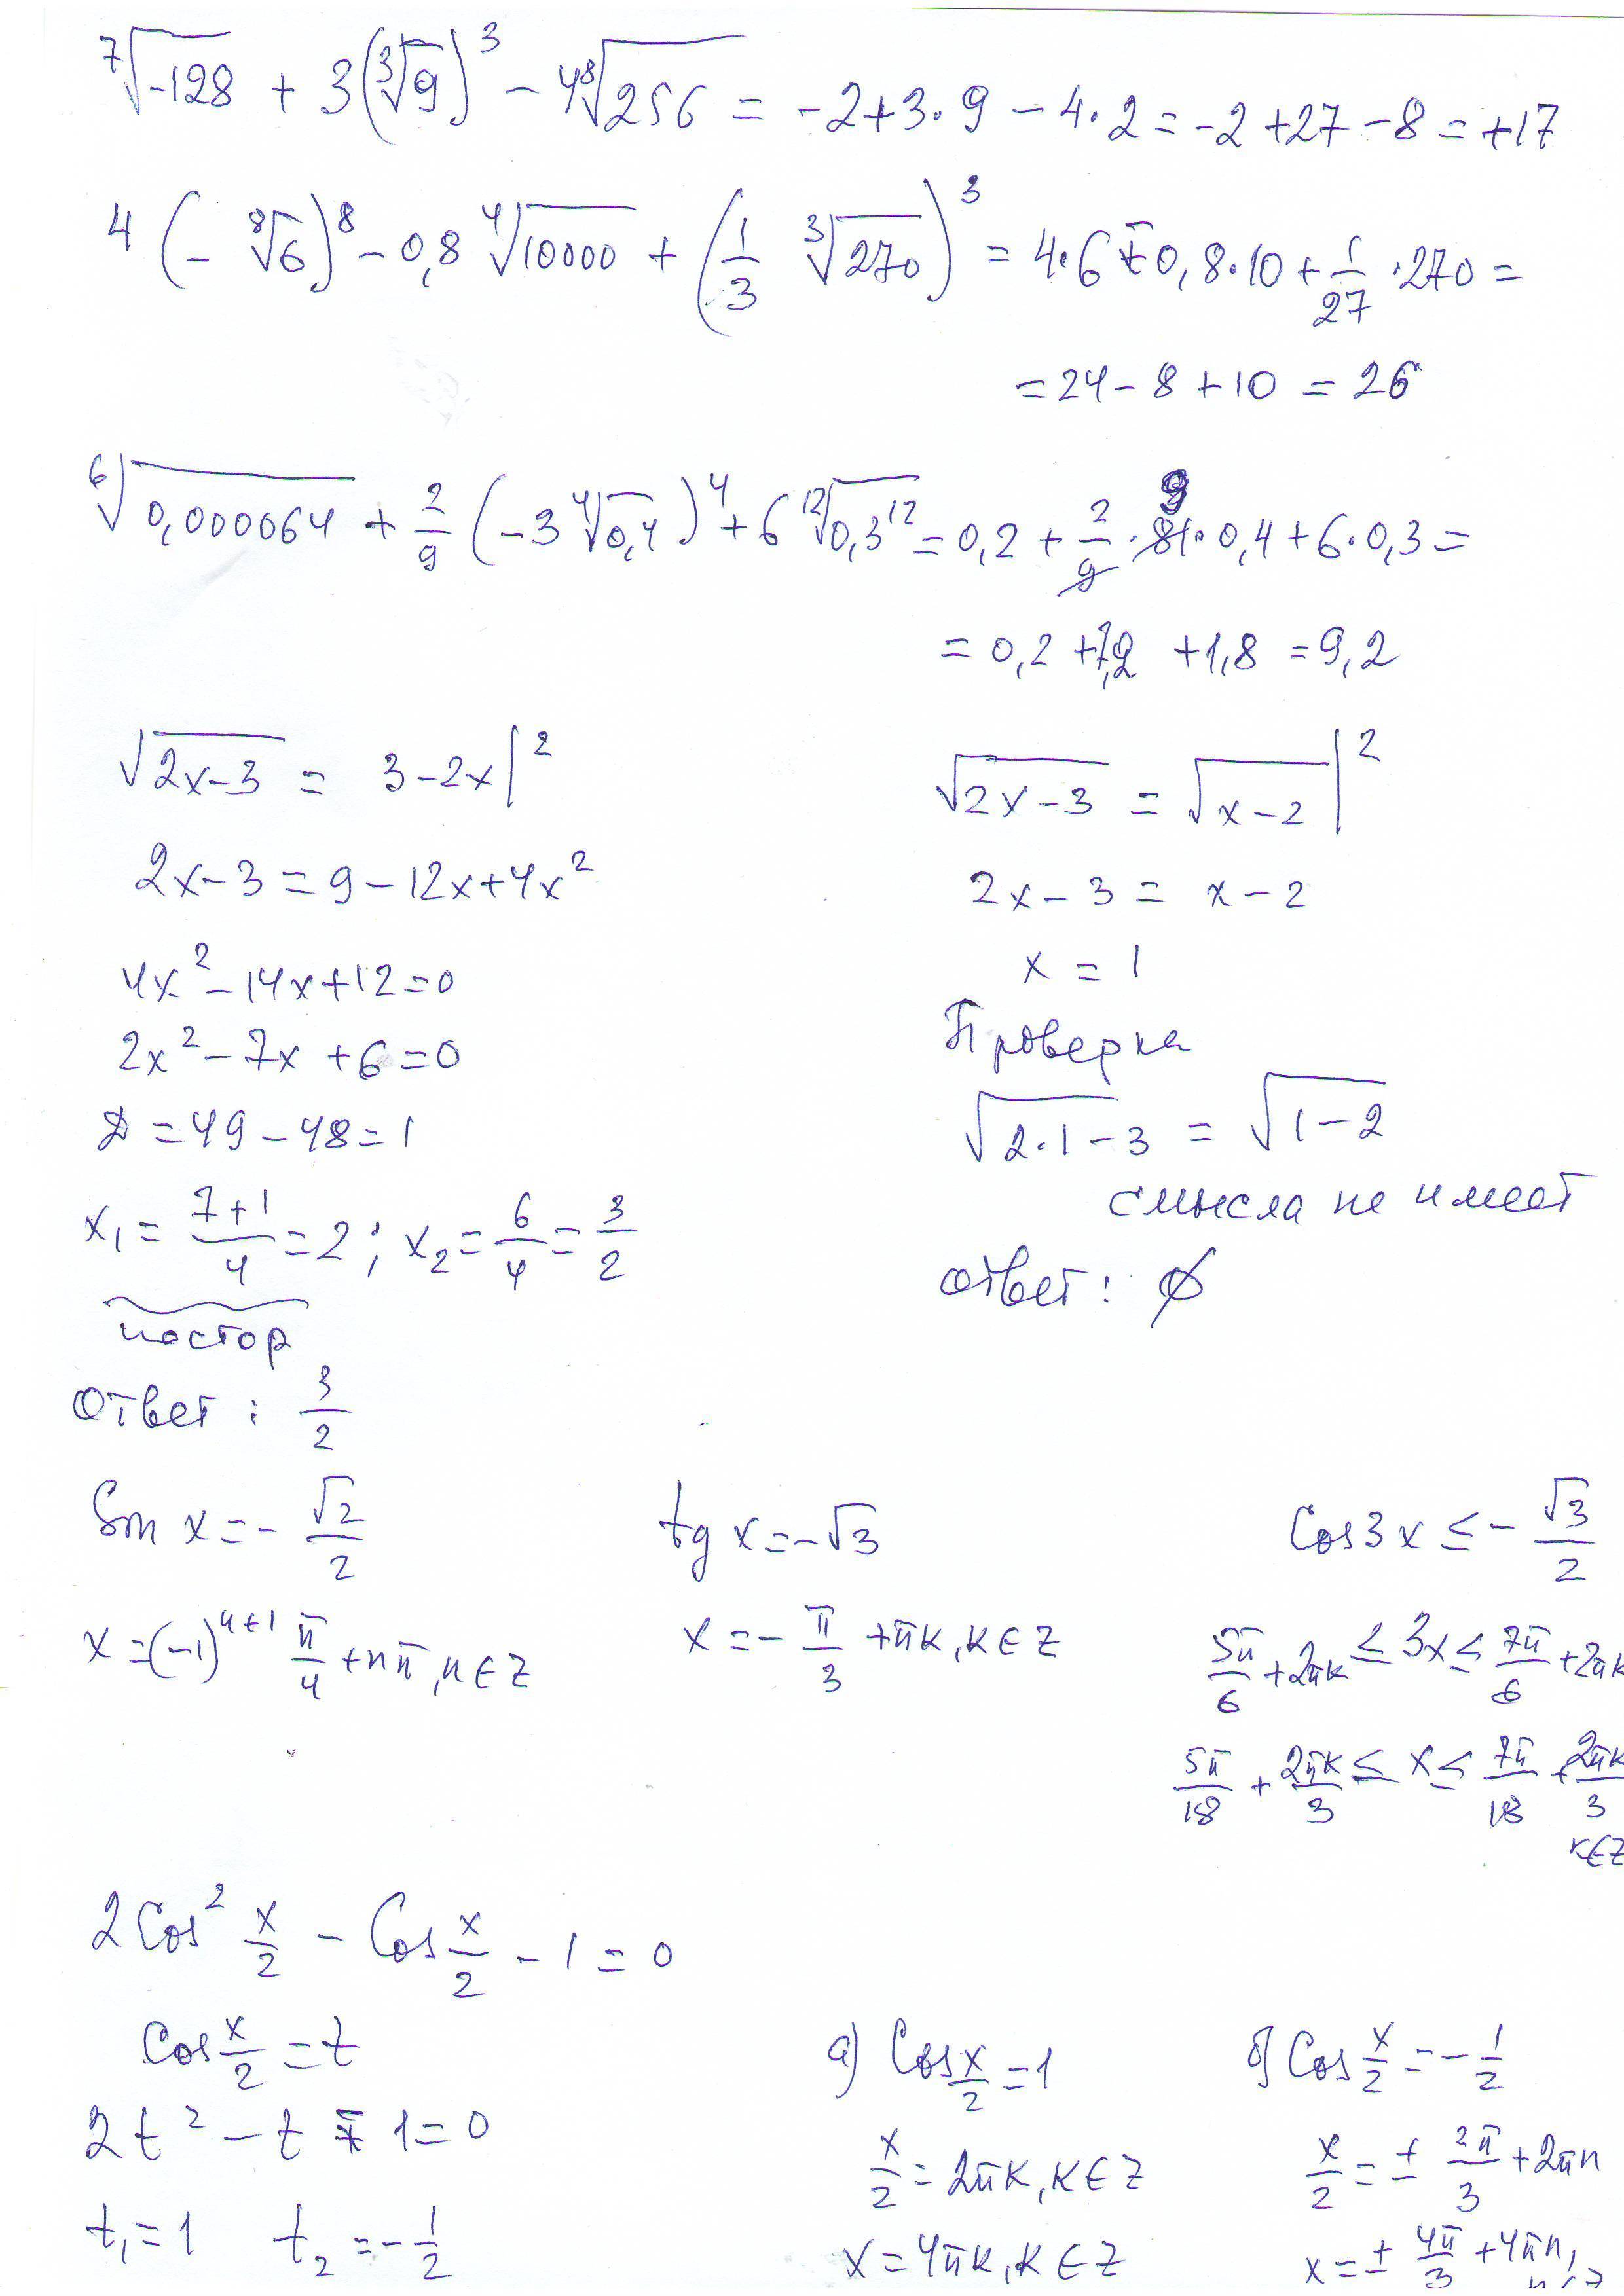 ⁷√-128 + 3(³√9)³ - 4⁸√256 = -2+3·9 - 4·2 = -2+27-8 = +17
4(-⁸√6)⁸ - 0,8 ⁴√10000 + (1/3 ³√270)³ = 4·6 - 0,8·10 + 1/27 ·270 =
= 24 - 8 + 10 = 26
⁶√0,000064 + 2/9 (-3 ⁴√0,4)⁴ + 6 ¹²√0,3¹² = 0,2 + 2/9 · 81 · 0,4 + 6·0,3 =
9
= 0,2 + 7,2 + 1,8 = 9,2
√2x-3 = 3-2x |²
2x-3 = 9-12x+4x²
4x²-14x+12=0
2x²-7x+6=0
D = 49-48 = 1
x₁ = 7+1/4 = 2; x₂ = 6/4 = 3/2
постор
Ответ: 3/2
√2x-3 = √x-2 |²
2x-3 = x-2
x = 1
Проверка
√2·1-3 = √1-2
смысла не имеет
ответ: ∅
Sin x = - √2/2
x = (-1)ⁿ⁺¹ π/4 + nπ, n∈Z
tg x = -√3
x = - π/3 + πk, k∈Z
Cos3x ≤ - √3/2
5π/6 + 2πk ≤ 3x ≤ 7π/6 + 2πk
5π/18 + 2πk/3 ≤ x ≤ 7π/18 + 2πk/3
k∈Z
2Cos² x/2 - Cos x/2 - 1 = 0
Cos x/2 = t
2t² - t - 1 = 0
t₁ = 1 t₂ = - 1/2
а) Cos x/2 = 1
x/2 = 2πk, k∈Z
x = 4πk, k∈Z
б) Cos x/2 = - 1/2
x/2 = ± 2π/3 + 2πn
x = ± 4π/3 + 4πn,